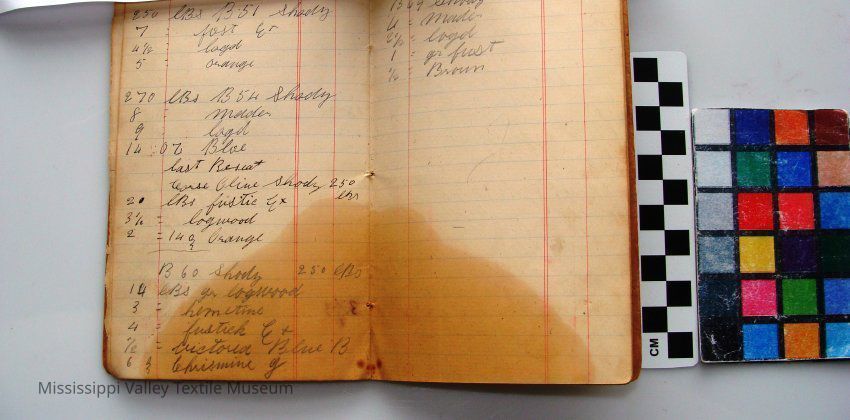 250 lBs B51 Shody
7 = fust Ex
4½ logd
5 orange
270 lBs B54 Shody
8 Mader
9 logd
14 oz Blue
last
Olive Shody 250
lBs
20 lBs fustic Ex
3½ = logwood
2 = 14 Orange
B60 Shody 250 lBs
14 lBs gr logwood
3 = hemitine
4 = fustick Ex
½ = Victorea Blue B
6 Chrismine g
Shody
4 = Mader
logd
1 = gr fust
½ = Brown
CM
Mississippi Valley Textile Museum